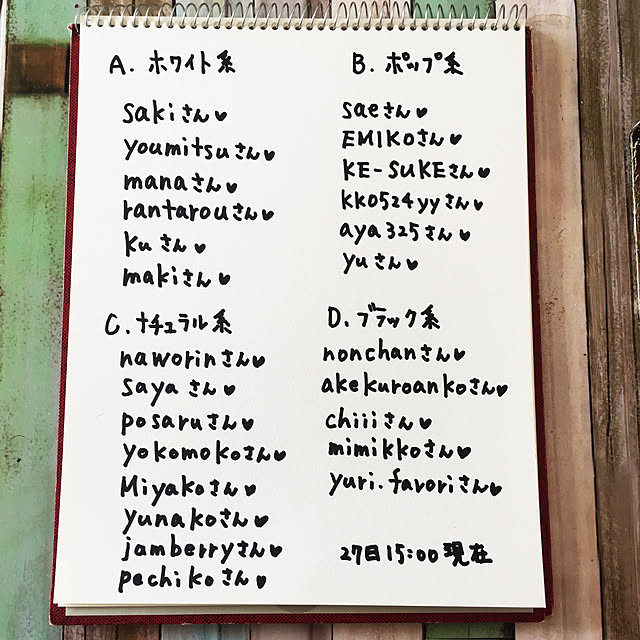 A. ホワイト系
sakiさん♥
youmitsuさん♥
manaさん♥
rantarouさん♥
kuさん♥
makiさん♥
B. ポップ系
saeさん♥
EMIKOさん♥
KE-SUKEさん♥
kko524yyさん♥
aya325さん♥
yuさん♥
C. ナチュラル系
naworinさん♥
sayaさん♥
posaruさん♥
yokomokoさん♥
Miyakoさん♥
yunakoさん♥
jamberryさん♥
pechikoさん♥
D. ブラック系
nonchanさん♥
akekuroankoさん♥
chiiiさん♥
mimikkoさん♥
yuri.favoriさん♥
27日15:00現在